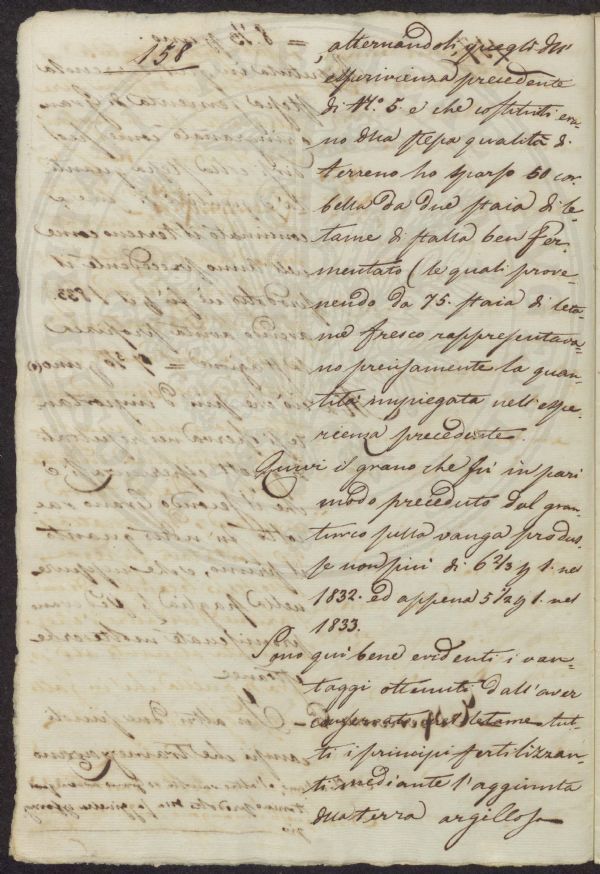 158
= , alternandoli, quegli dell'
esperienza precedente
di N.° 5. e che costituti era-
no della stessa qualità di
terreno ho sparso 50 cor-
bella da due staia di le-
tame di stalla ben fer-
mentato (le quali prove-
nendo da 75. staia di leta-
me fresco rappresentava-
no precisamente la quan-
tità impiegata nell'espe-
rienza precedente.
Quivi il grano che fu in pari
modo preceduto dal gran-
turco sulla vanga produs-
se non più di 6 2/3 p 1. nel
1832. ed appena 5 1/2 p 1. nel
1833.
Sono qui bene evidenti i van-
taggi ottenuti dall'aver
conservato nel letame tut-
ti i principi fertilizzan-
ti mediante l'aggiunta
della terra argillosa